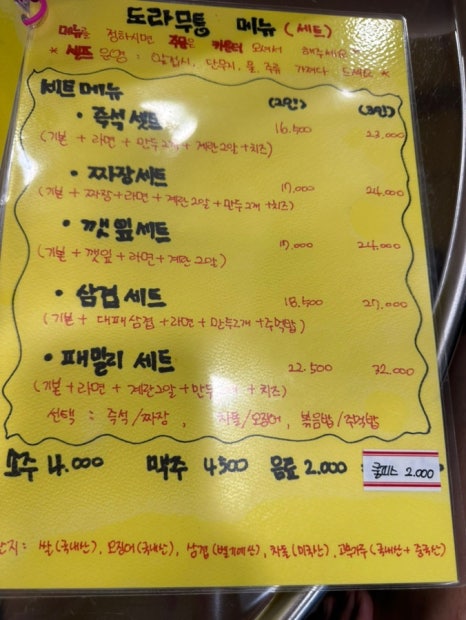 도라무통 메뉴 (세트)
메뉴를 정하시면 주문은 카운터 오셔서 해주세요 *
* 셀프 운영 : 앞접시, 단무지, 물, 주류 가져다 드세요 *
세트메뉴 (2인) (3인)
• 즉석 셋트 16.500 23.000
(기본 + 라면 + 만두2개 + 계란2알 + 치즈)
• 짜장세트 17.000 24.000
(기본 + 짜장+라면 + 계란2알 +만두2개 +치즈)
• 깻잎세트 17.000 24.000
(기본 + 깻잎 + 라면 + 계란2알)
• 삼겹세트 18.500 27.000
(기본 + 대패삼겹 +라면 + 만두2개 +주먹밥)
• 패밀리 세트 22.500 32.000
(기본 +라면 + 계란2알 + 만두 개 + 치즈)
선택 : 즉석/짜장, 차돌/오징어, 볶음밥/주먹밥
소주 4.000 맥주 4500 음료 2.000 쿨피스 2.000
산지: 쌀(국내산), 오징어(국내산), 삼겹(벨기에산), 차돌(미국산), 고춧가루(국내산+중국산)